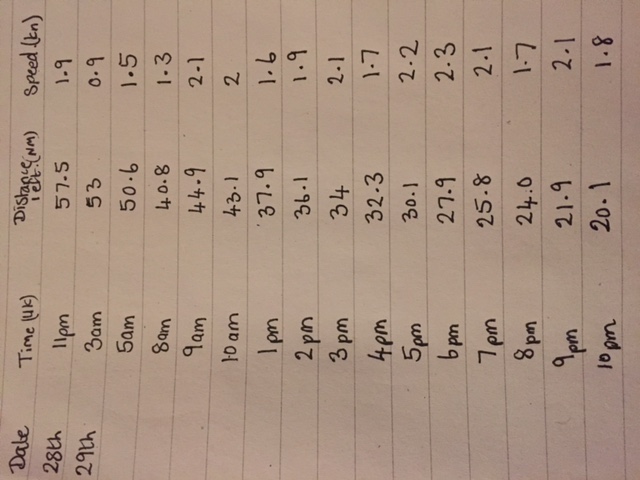 Date Time (UK) Distance left (NM) Speed (kn)
28th 11pm 57.5 1.9
29th 3am 53 0.9
5am 50.6 1.5
8am 40.8 1.3
9am 44.9 2.1
10am 43.1 2
1pm 37.9 1.6
2pm 36.1 1.9
3pm 34 2.1
4pm 32.3 1.7
5pm 30.1 2.2
6pm 27.9 2.3
7pm 25.8 2.1
8pm 24.0 1.7
9pm 21.9 2.1
10pm 20.1 1.8